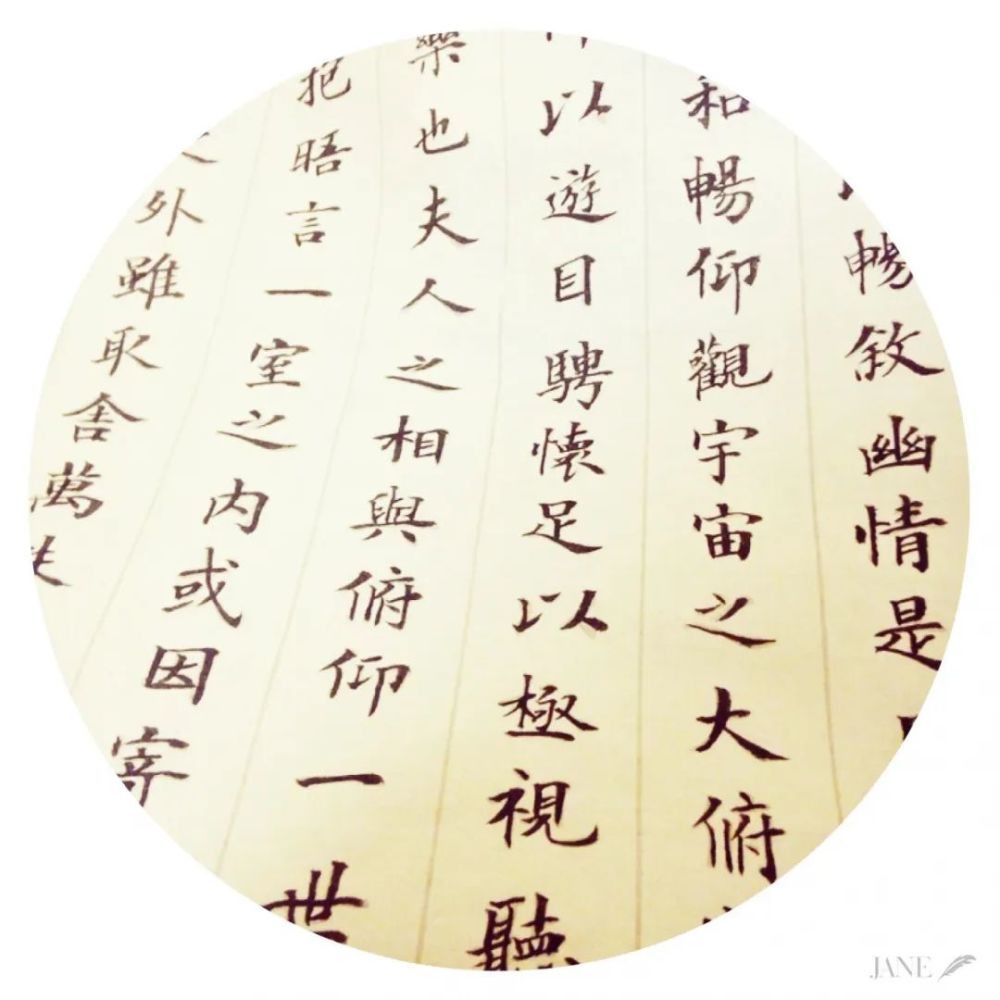 暢敘幽情是
和暢仰觀宇宙之大俯
以遊目騁懷足以極視聽
樂也夫人之相與俯仰一世
抱晤言一室之內或因寄
外雖取舍萬
JANE